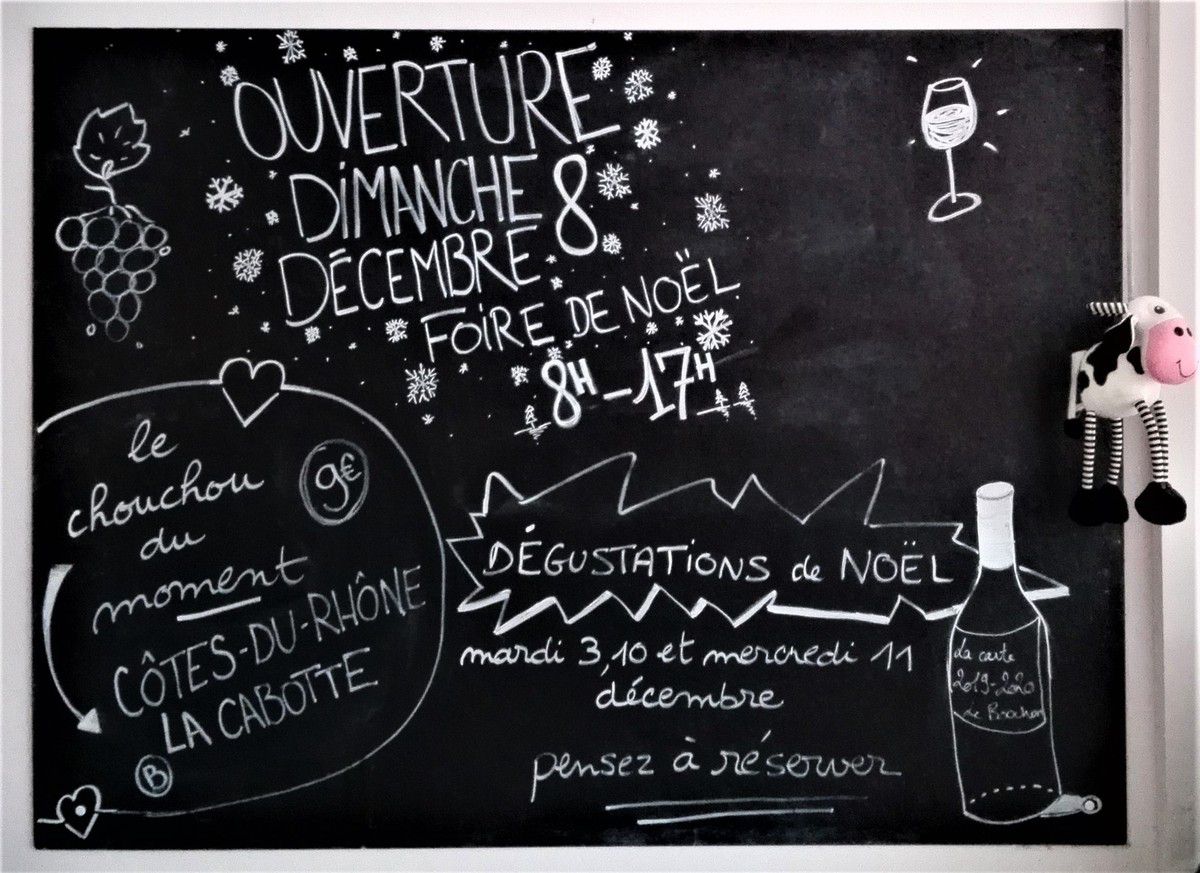 OUVERTURE
DIMANCHE 8
DÉCEMBRE
FOIRE DE NOËL
8H-17H
le
chouchou
du
moment
9€
CÔTES-DU-RHÔNE
LA CABOTTE
B
DÉGUSTATIONS de NOËL
mardi 3,10 et mercredi 11
décembre
pensez à réserver
La carte
2019-2020
de Brochon